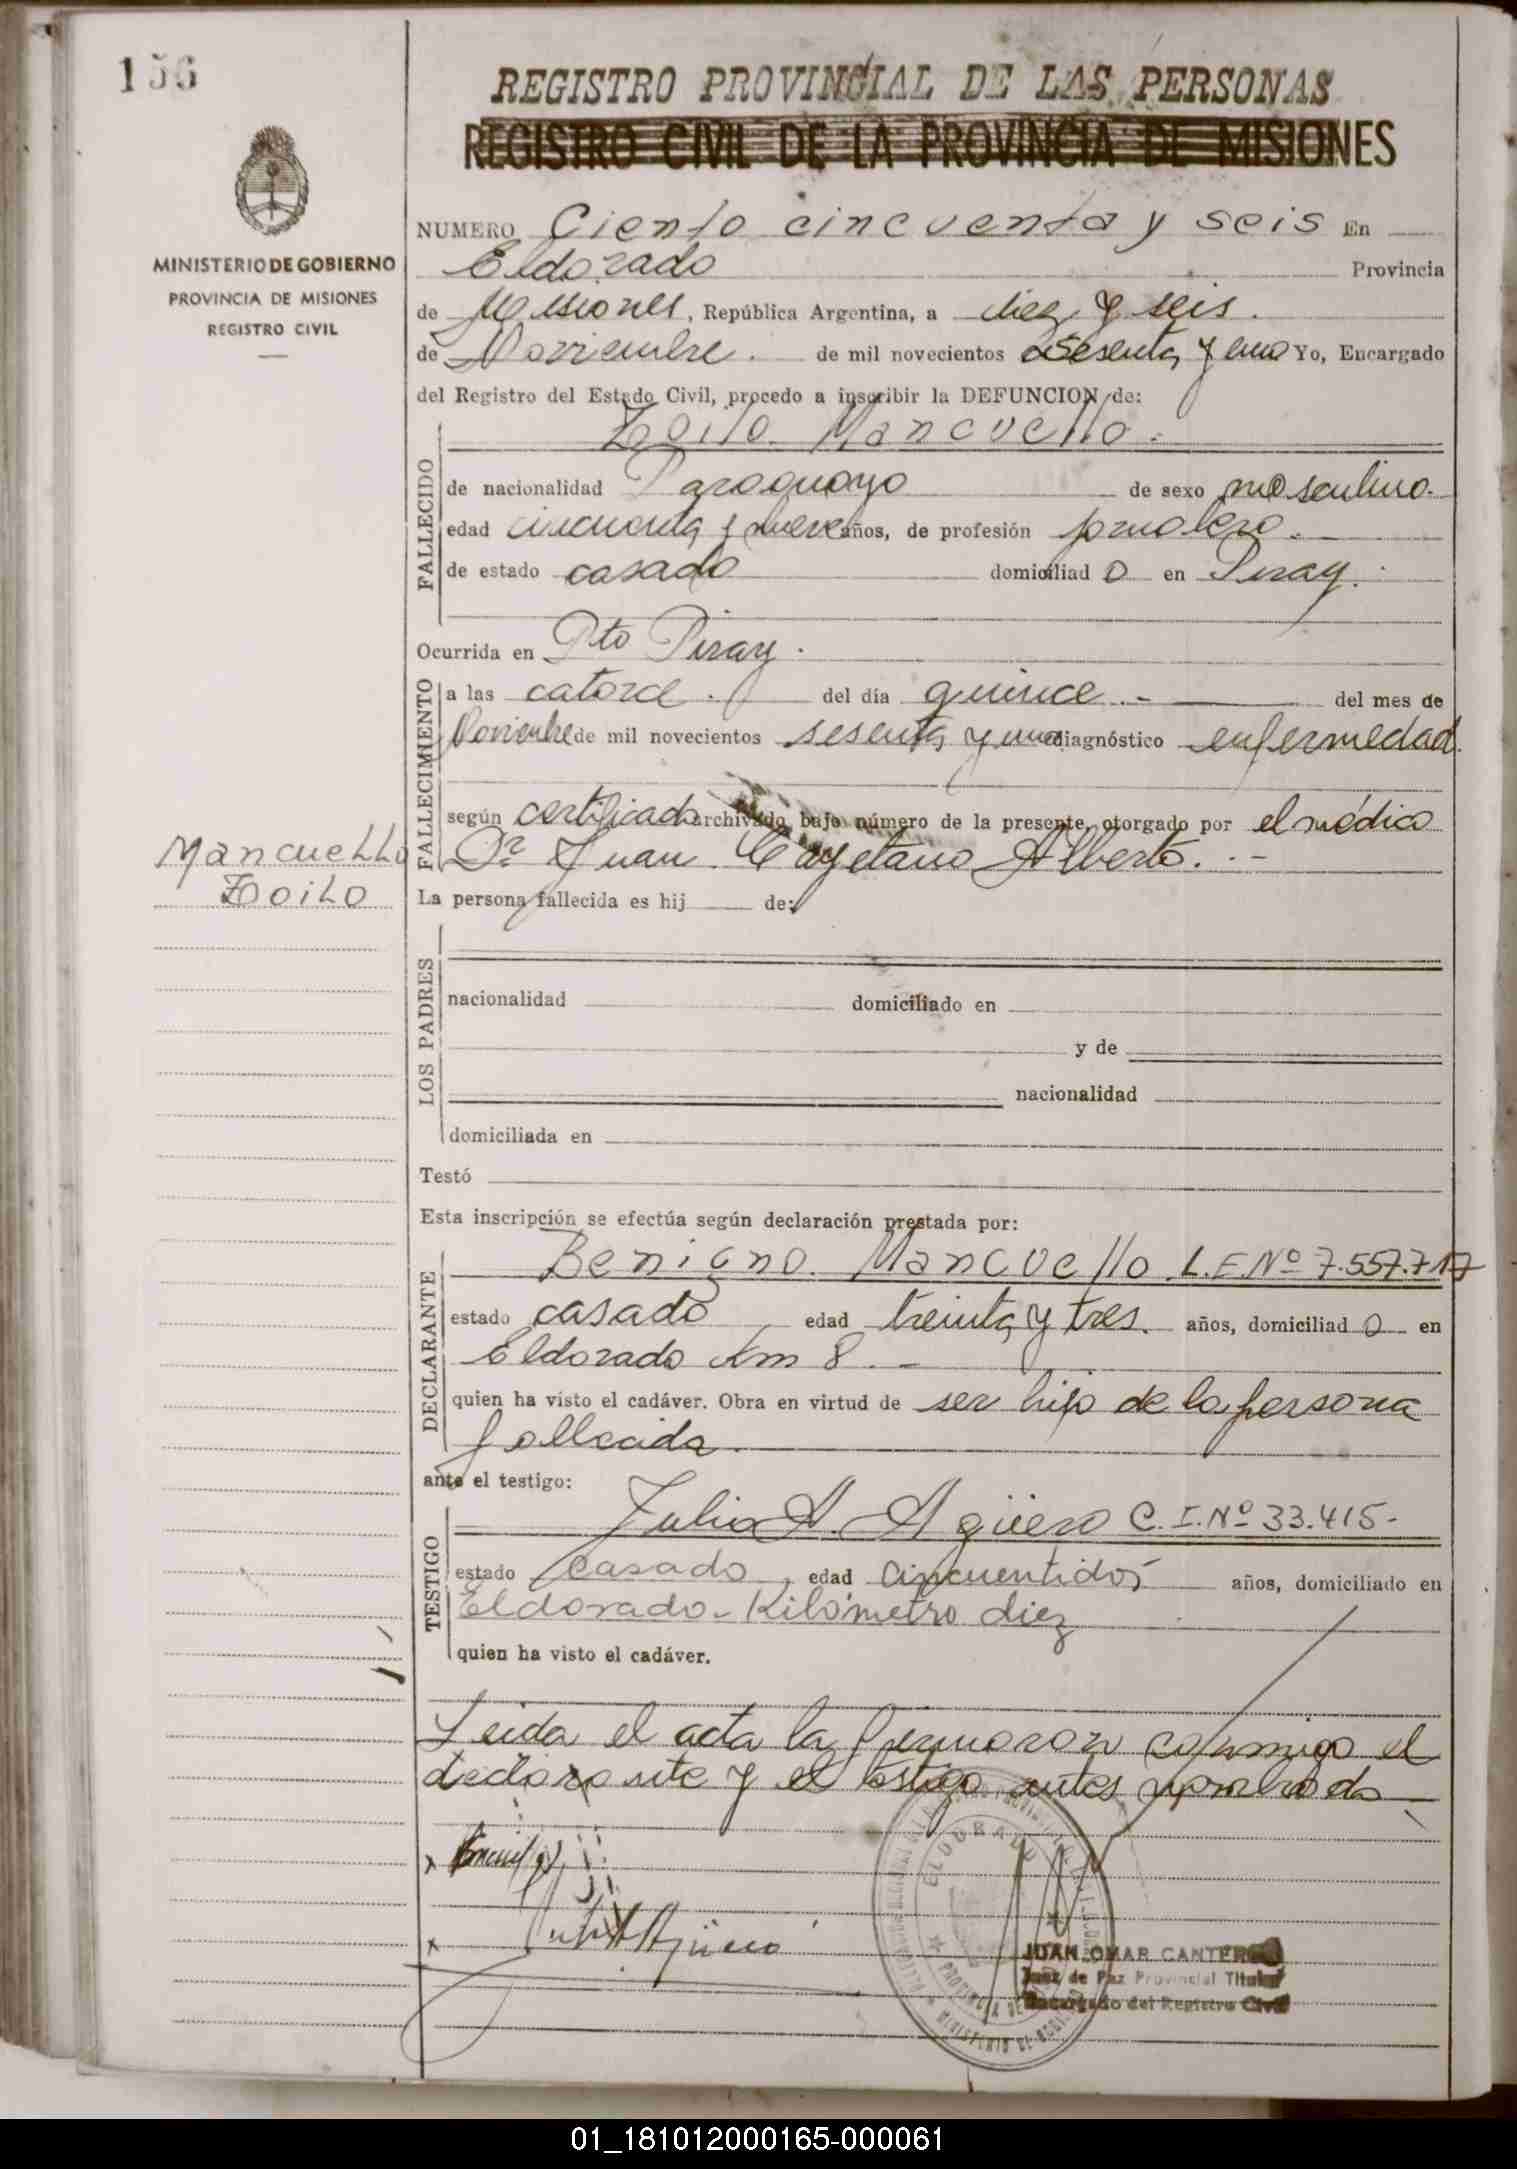 156
REGISTRO PROVINCIAL DE LAS PERSONAS
REGISTRO CIVIL DE LA PROVINCIA DE MISIONES
MINISTERIO DE GOBIERNO
PROVINCIA DE MISIONES
REGISTRO CIVIL
NUMERO Ciento cincuenta y seis En
Eldorado Provincia
de Misiones, República Argentina, a diez y seis.
de Noviembre. de mil novecientos sesenta y uno Yo, Encargado
del Registro del Estado Civil, procedo a inscribir la DEFUNCION de:
Zoilo Mancuello.
FALLECIDO
de nacionalidad Paraguayo de sexo masculino.
edad cincuenta y nueve años, de profesión jornalero.
de estado casado domiciliad o en Piray.
Ocurrida en Pto Piray.
FALLECIMIENTO
a las catorce. del día quince.- del mes de
Noviembre de mil novecientos sesenta y uno diagnóstico enfermedad.
según certificado archivado bajo número de la presente, otorgado por el médico
Dr. Juan Cayetano Alberto.-
Mancuello
Zoilo
La persona fallecida es hij de:
LOS PADRES
nacionalidad domiciliado en
y de
nacionalidad
domiciliada en
Testó
Esta inscripción se efectúa según declaración prestada por:
DECLARANTE
Benigno Mancuello L.E.Nº 7.557.717
estado casado edad treinta y tres. años, domiciliad o en
Eldorado Km 8.-
quien ha visto el cadáver. Obra en virtud de ser hijo de la persona
fallecida.
ante el testigo:
TESTIGO
Julio A. Agüero C.I.Nº 33.415-
estado casado, edad cincuentidós años, domiciliado en
Eldorado-Kilómetro diez
quien ha visto el cadáver.
Leida el acta la firmaron conmigo el
declarante y el testigo antes nombrado
x
x Julio A Agüero
ELDORADO
JUAN OMAR CANTERO
Juez de Paz Provincial Titular
Encargado del Registro Civil
01_181012000165-000061